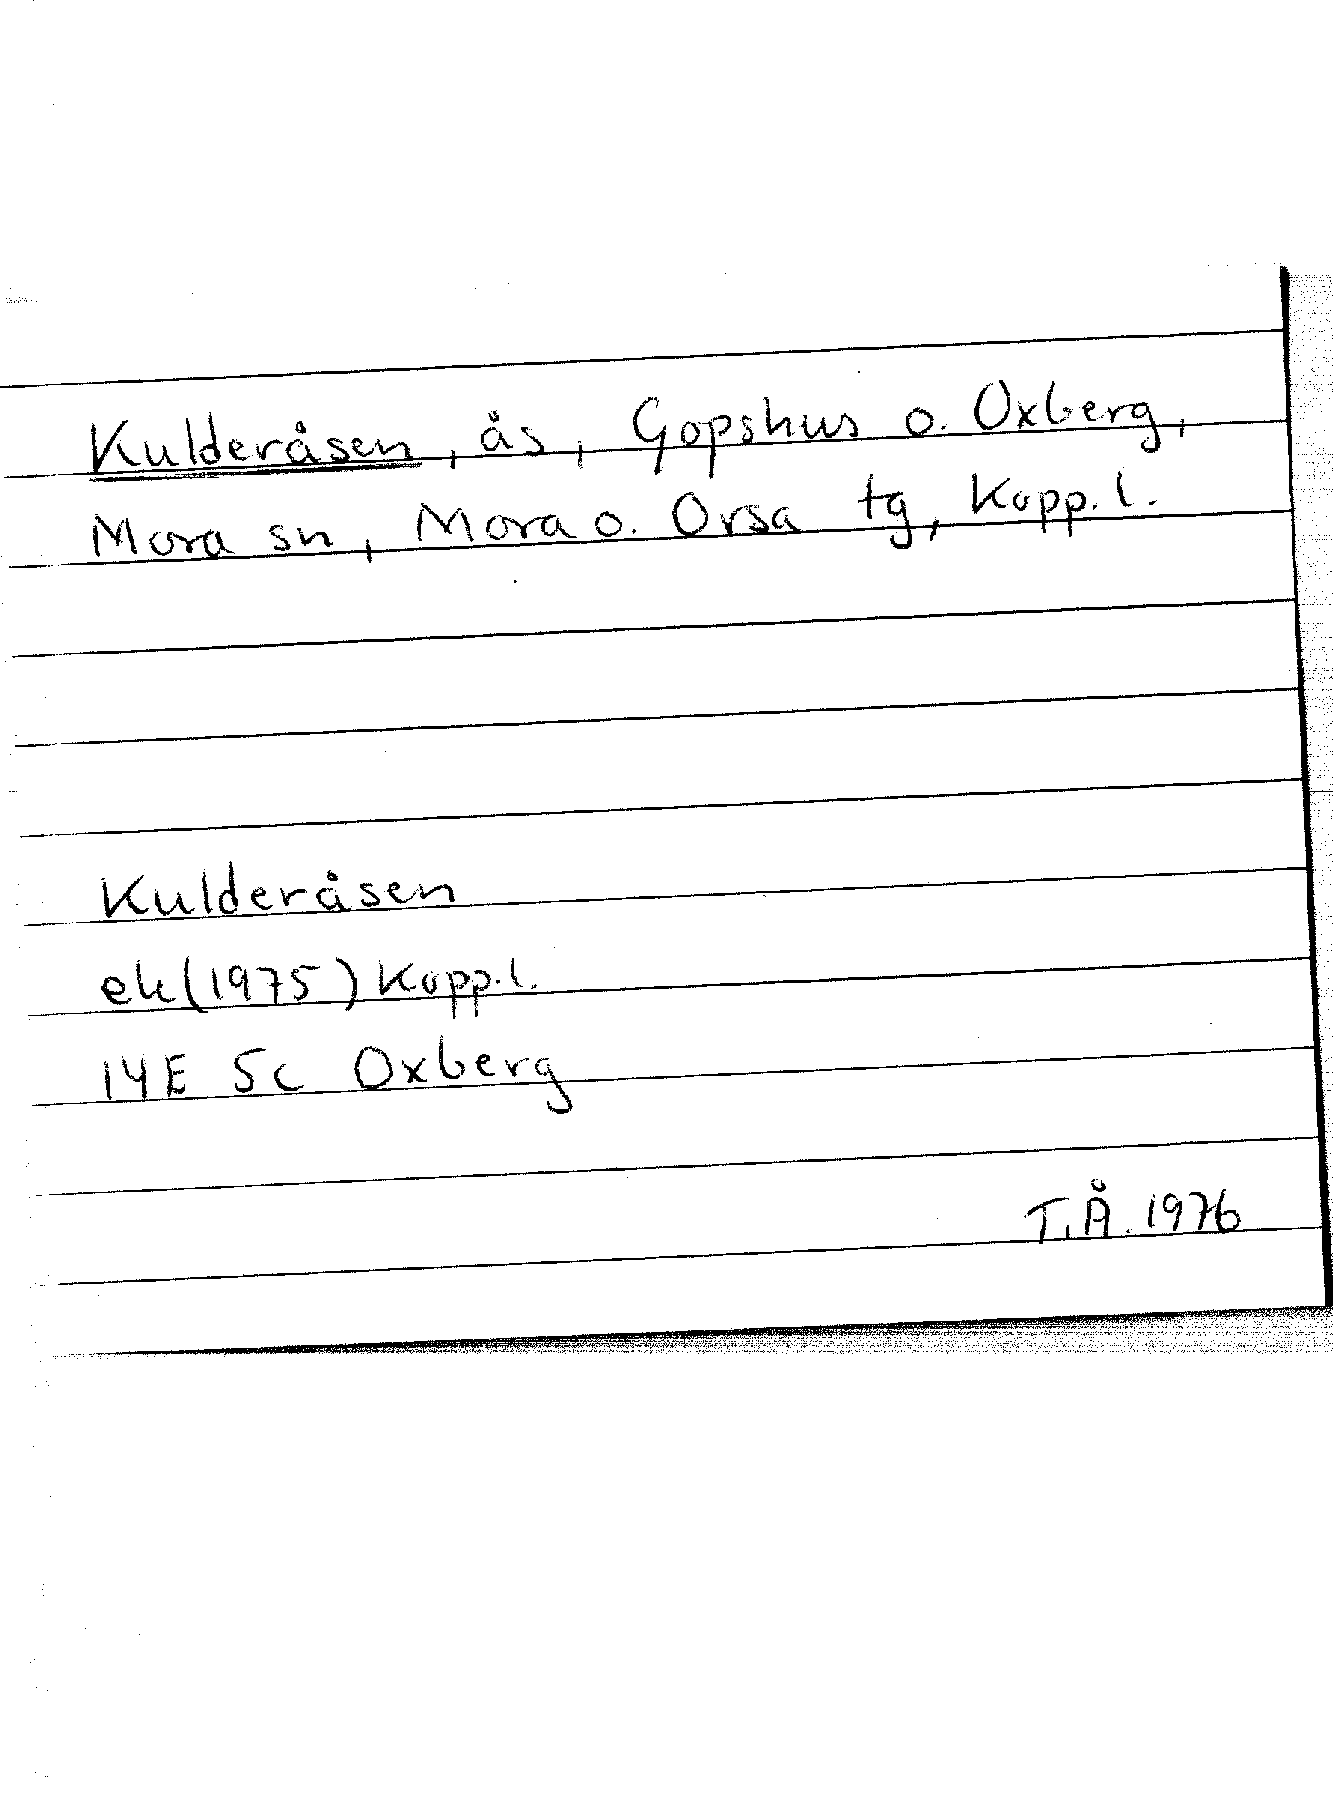 Kulderåsen, ås, Gopshus o. Oxberg,
Mora sn, Mora o. Orsa tg, Kopp. l.
Kulderåsen
ek(1975) Kopp. l.
14E 5c Oxberg
T.Å. 1976